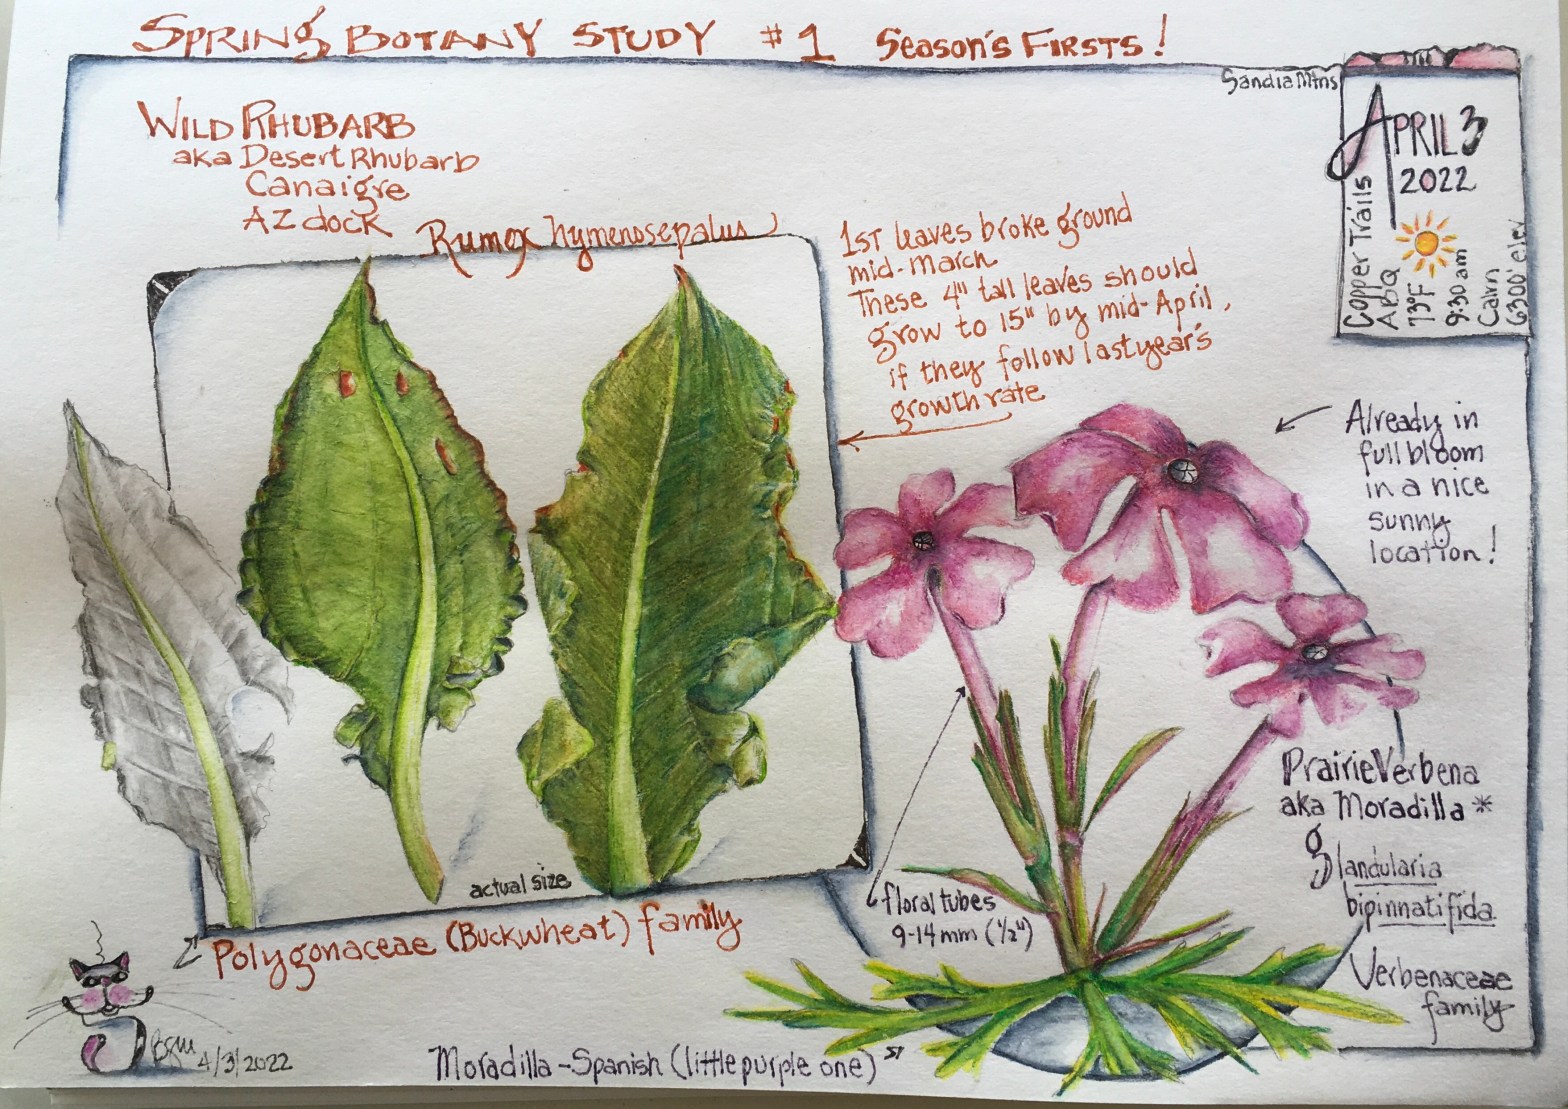 Spring Botany Study #1 Season's Firsts!
Sandia Mtns
April 3
2022
Copper Trails
ABQ
73°F
9:30 am
Cairn
6300' elev
Wild Rhubarb
aka Desert Rhubarb
Canaigre
AZ dock
Rumex hymenosepalus
1st leaves broke ground
mid-March
These 4" tall leaves should
grow to 15" by mid-April,
if they follow last year's
growth rate
Already in
full bloom
in a nice
sunny
location!
actual size
Polygonaceae (Buckwheat) family
floral tubes
9-14 mm (1/2")
Prairie Verbena
aka Moradilla *
Glandularia
bipinnatifida
Verbenaceae
family
Moradilla - Spanish (little purple one)
4/3/2022